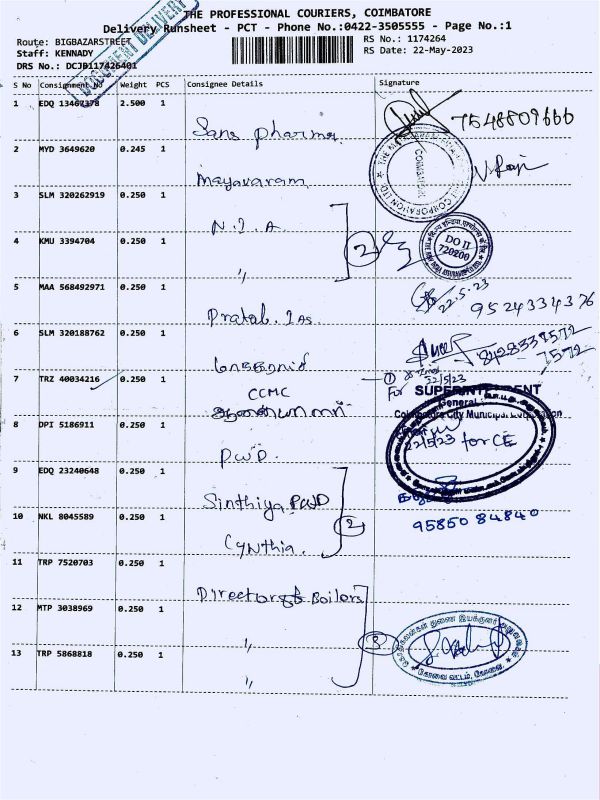 DOCUMENT DELIVERY
THE PROFESSIONAL COURIERS, COIMBATORE
Delivery Runsheet - PCT - Phone No.:0422-3505555 - Page No.:1
Route: BIGBAZARSTREET
Staff: KENNADY
DRS No.: DCJB117426401
RS No.: 1174264
RS Date: 22-May-2023
S No Consignment No Weight PCS Consignee Details Signature
1 EDQ 13467378 2.500 1
Sans pharma. 7548809666
2 MYD 3649620 0.245 1
Mayavaram
COIMBATORE
3 SLM 320262919 0.250 1
N.I.A
4 KMU 3394704 0.250 1
〃 2 DO II
720200
5 MAA 568492971 0.250 1
22.5.23
9524334376
6 SLM 320188762 0.250 1
8428337572
7572
7 TRZ 40034216 0.250 1
1 22/5/23
CCMC
ஆணையாளர்
For SUPERINTENDENT
General
Coimbatore City Municipal Corporation
8 DPI 5186911 0.250 1
22/5/23 for CE
PWD.
9 EDQ 23240648 0.250 1
Sinthiya PWD
10 NKL 8045589 0.250 1
2
95850 84840
Cynthia.
11 TRP 7520703 0.250 1
Director of Boilers
12 MTP 3038969 0.250 1
〃 3
13 TRP 5868818 0.250 1
〃
கோவை வட்டம், கோவை